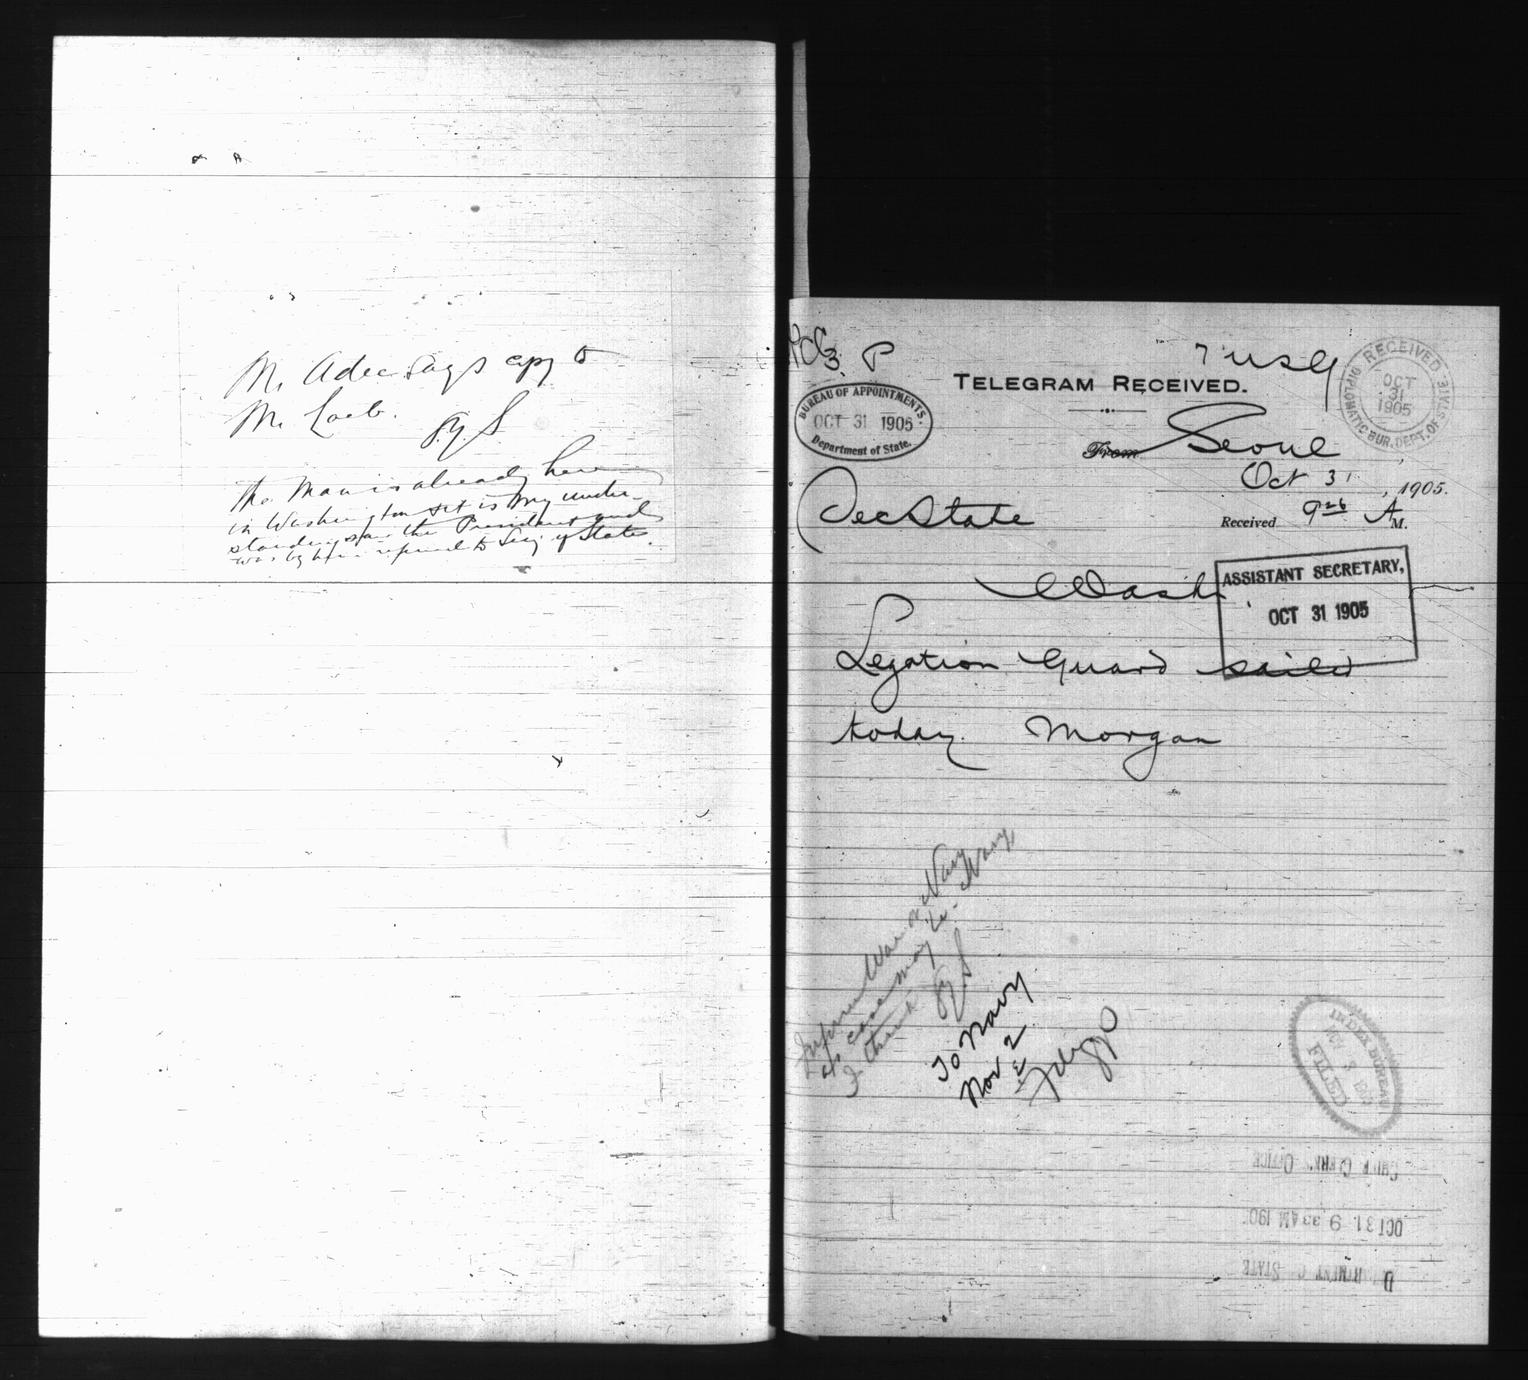 Mr. Adee says copy to
Mr. Loeb.
The man is already here
in Washington & it is my under-
standing saw the President and
was by him referred to Secy of State.
TELEGRAM RECEIVED.
BUREAU OF APPOINTMENTS
OCT 31 1905
Department of State.
RECEIVED
OCT
31
1905
DIPLOMATIC BUR. DEPT. OF STATE
From Seoul
Oct 31, 1905.
SecState
Received 9 26 A M.
Wash
ASSISTANT SECRETARY,
OCT 31 1905
Legation Guard sailed
today. Morgan
Inform War or Navy
as case may be - Navy,
I think
To Navy
Nov 2
INDEX BUREAU
FILED
CHIEF CLERK'S OFFICE
OCT 31 9 33 AM 190
D RTMENT STATE